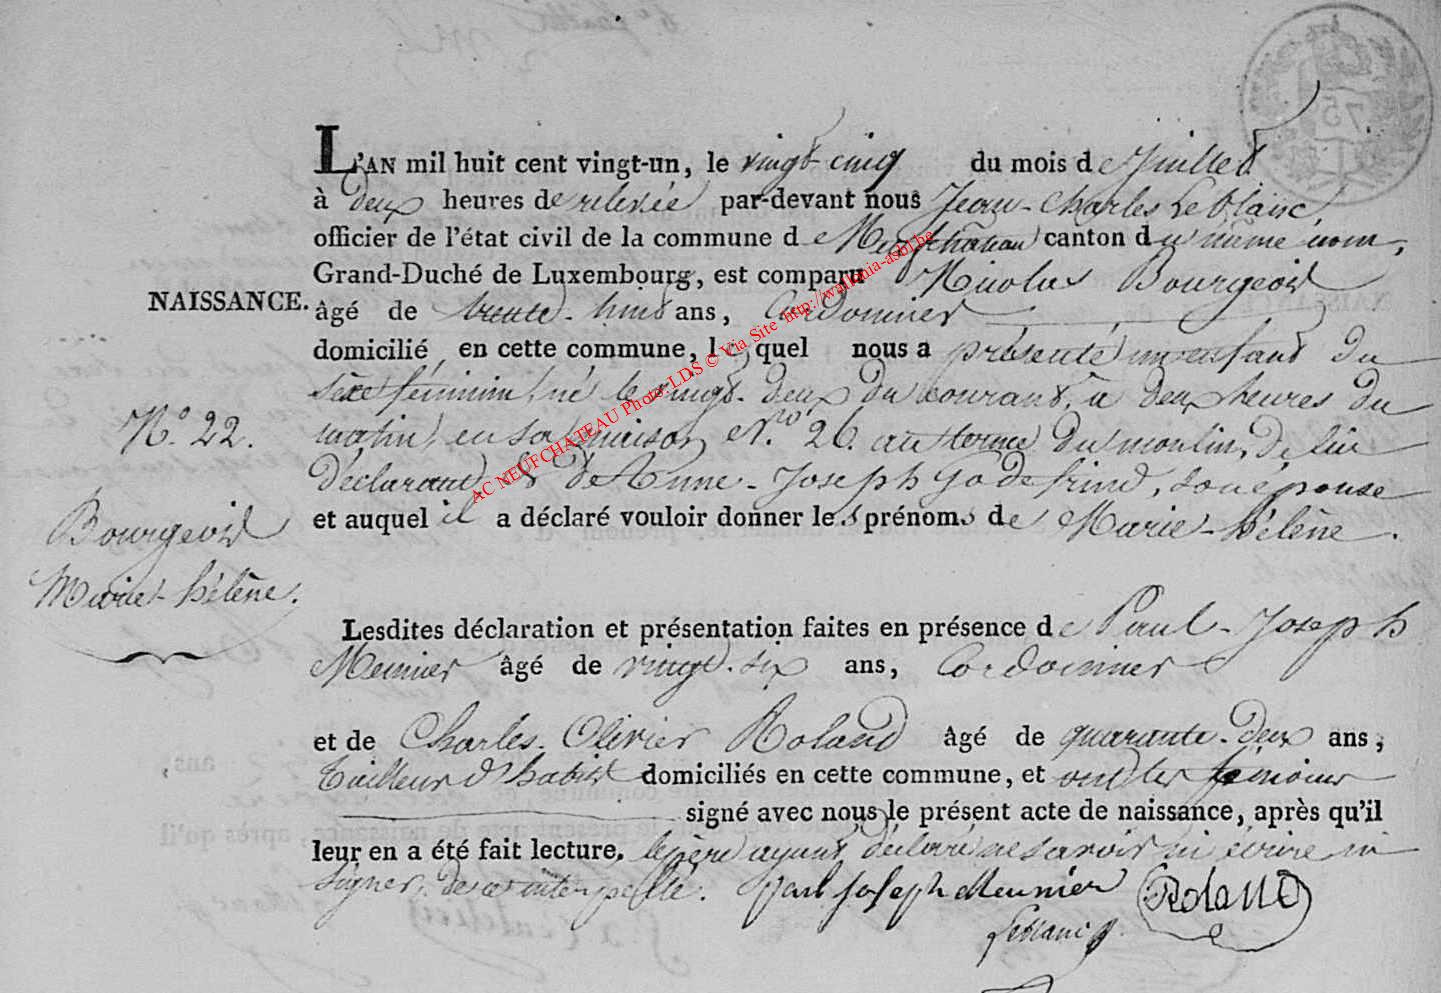 L'AN mil huit cent vingt-un, le vingt cinq du mois de Juillet
à deux heures de relevée par-devant nous Jean-Charles Leblanc,
officier de l'état civil de la commune de Neufchateau canton du même nom,
Grand-Duché de Luxembourg, est comparu Nicolas Bourgeois
NAISSANCE.
âgé de trente-huit ans, Cordonnier
domicilié en cette commune, lequel nous a présenté un enfant du
sèxe féminin, né le vingt-deux du courant, à deux heures du
N.o 22.
matin, en sa maison N.ro 26. au terme du moulin, de lui
déclarant & de Anne-Joseph Godefrind, son épouse
et auquel il a déclaré vouloir donner les prénoms de Marie-hélène.
Bourgeois
Marie-hélène.
Lesdites déclaration et présentation faites en présence de Paul-Joseph
Meunier âgé de vingt-six ans, Cordonnier
et de Charles-Olivier Roland âgé de quarante-deux ans,
tailleur d'habits domiciliés en cette commune, et ont les témoins
signé avec nous le présent acte de naissance, après qu'il
leur en a été fait lecture. le père ayant déclaré ne savoir ni écrire ni
signer, de ce interpellé. paul joseph Meunier Roland
Leblanc
AC NEUFCHATEAU Photo LDS © Via Site http://wallonia-asbl.be
75